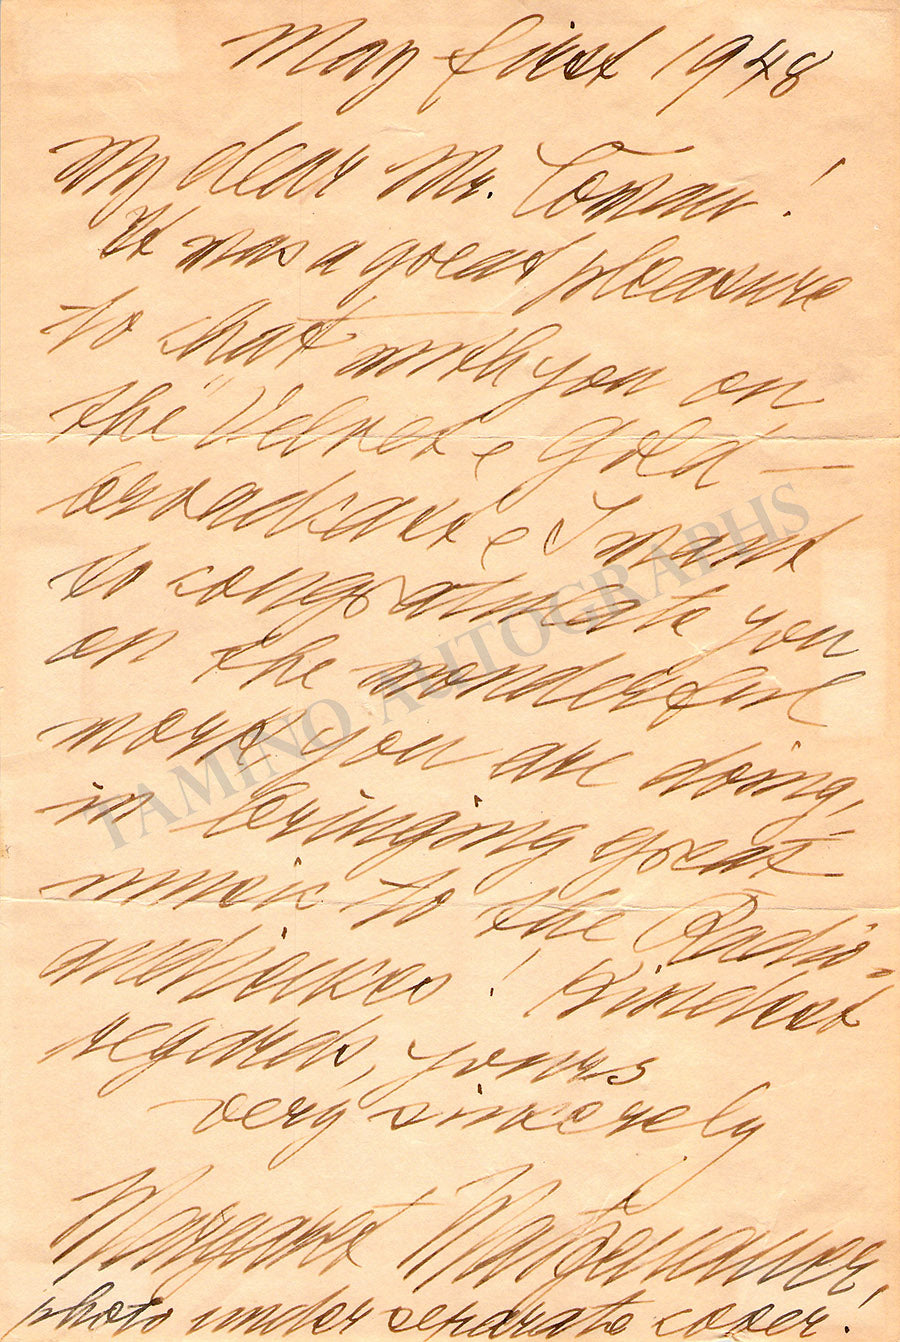 May first 1948
My dear Mr. Toman!
It was a great pleasure
to chat with you on
the "Velvet & Gold" —
broadcast & I want
to congratulate you
on the wonderful
work you are doing,
in bringing great
music to the Radio-
audiences! Kindest
regards, yours
very sincerely
Margaret Matzenauer,
photo under separate cover!
TAMINO AUTOGRAPHS